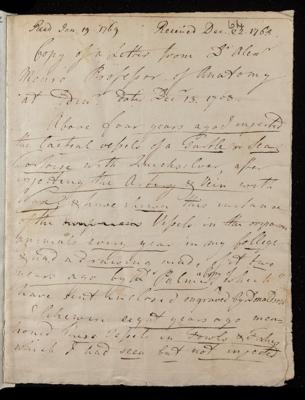 Read Jan. 19 1769 Received Dec. 22. 1768
64
Copy of a Letter from Dr Alexr
Monro Professor of Anatomy
at Edinr date Decr 13. 1768.
Above four years ago I injected
the Lacteal vessels of a Turtle or Sea
tortoise with Quicksilver, after
injecting the Artery & Vein with
wax & have since this instance
of the Vessels in the
animals every year in my College
& had a drawing made of it two
years ago by a Palmer, which
I have sent Enclosed engraved by Donaldson
Likewise eight years ago
these Vessels in Fowls & Fishes
which I had seen but not injected